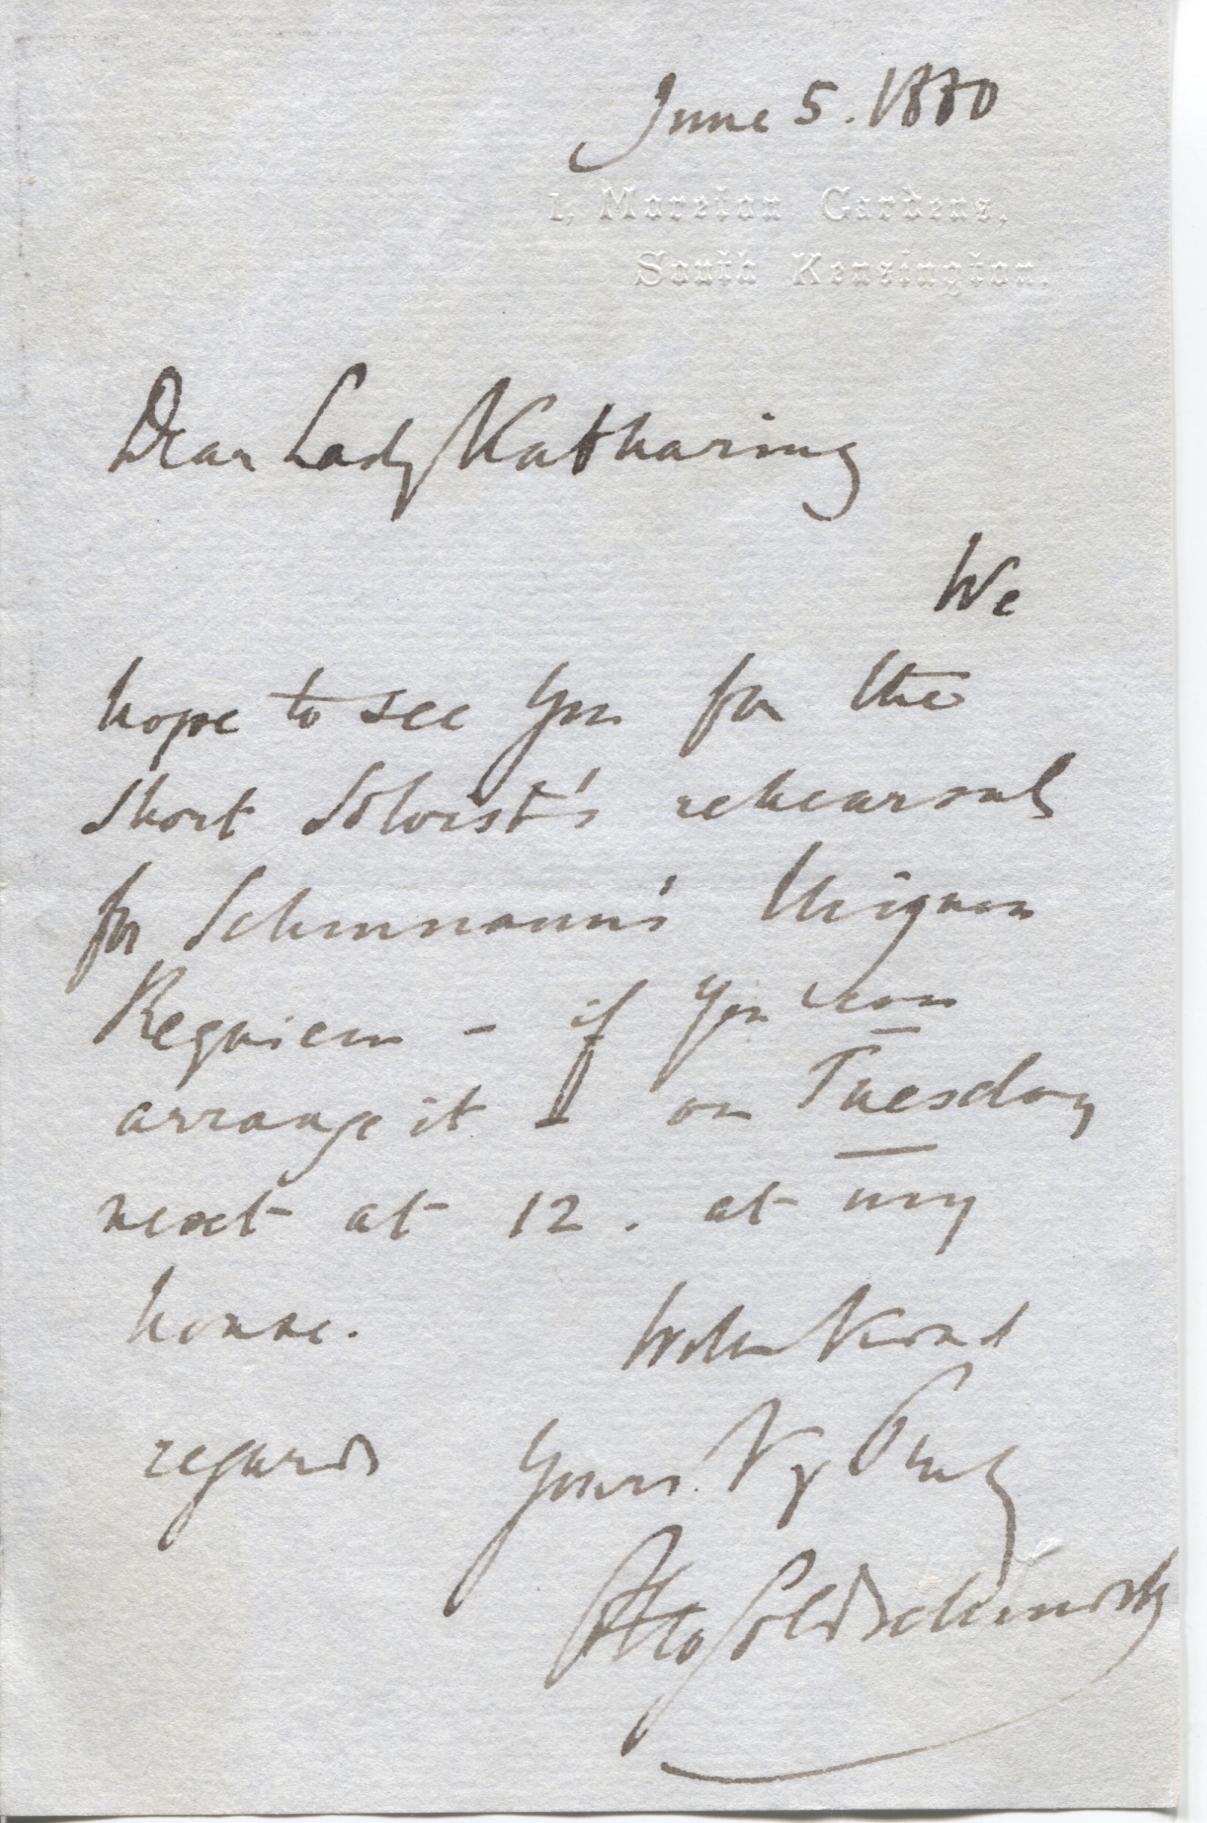 June 5. 1880
1, Moreton Gardens,
South Kensington.
Dear Lady Katharine
We
hope to see you for the
short Soloist's rehearsal
for Schumann's Mignon
Requiem – if you can
arrange it – on Tuesday
next at 12. at my
house. With Kind
regards Yours Vy Truly
Otto Goldschmidt